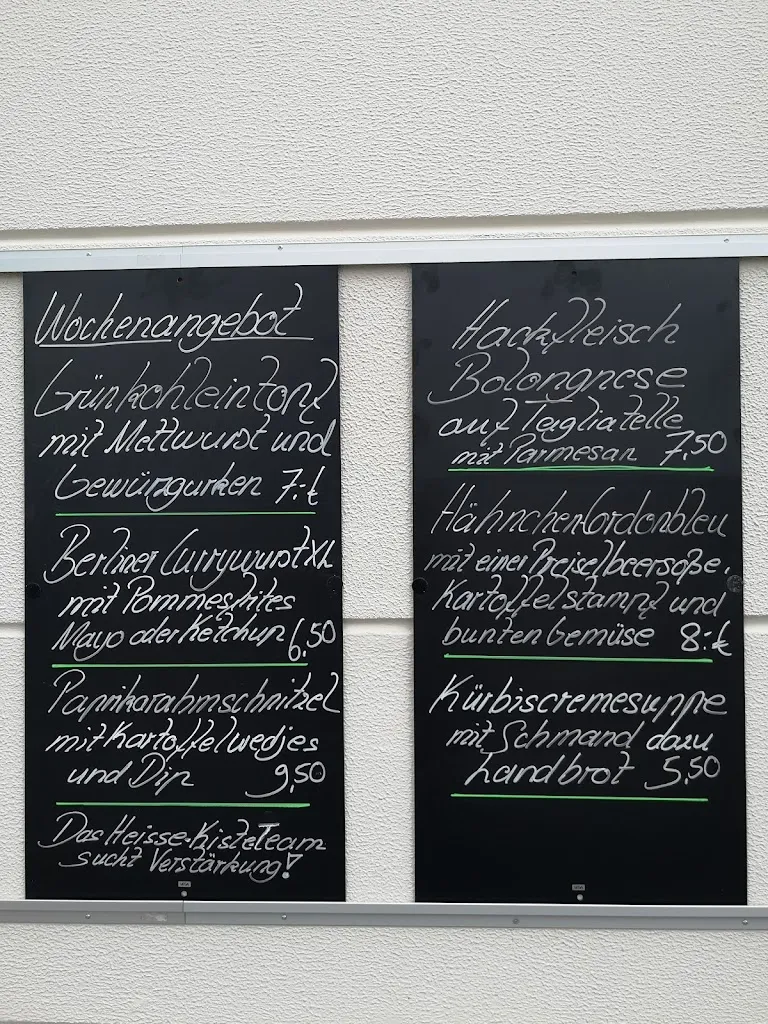 Wochenangebot
Grünkohleintopf
mit Mettwurst und
Gewürzgurken 7:-€
Berliner Currywurst XL
mit Pommesfrites
Mayo oder Ketchup 6,50
Paprikarahmschnitzel
mit Kartoffelwedjes
und Dip 9,50
Das Heisse-Kiste Team
sucht Verstärkung!
Hackfleisch
Bolongnese
auf Tagliatelle
mit Parmesan 7,50
Hähnchen-Cordonbleu
mit einer Preiselbeersoße,
Kartoffelstampf und
bunten Gemüse 8:-€
Kürbiscremesuppe
mit Schmand dazu
Landbrot 5,50